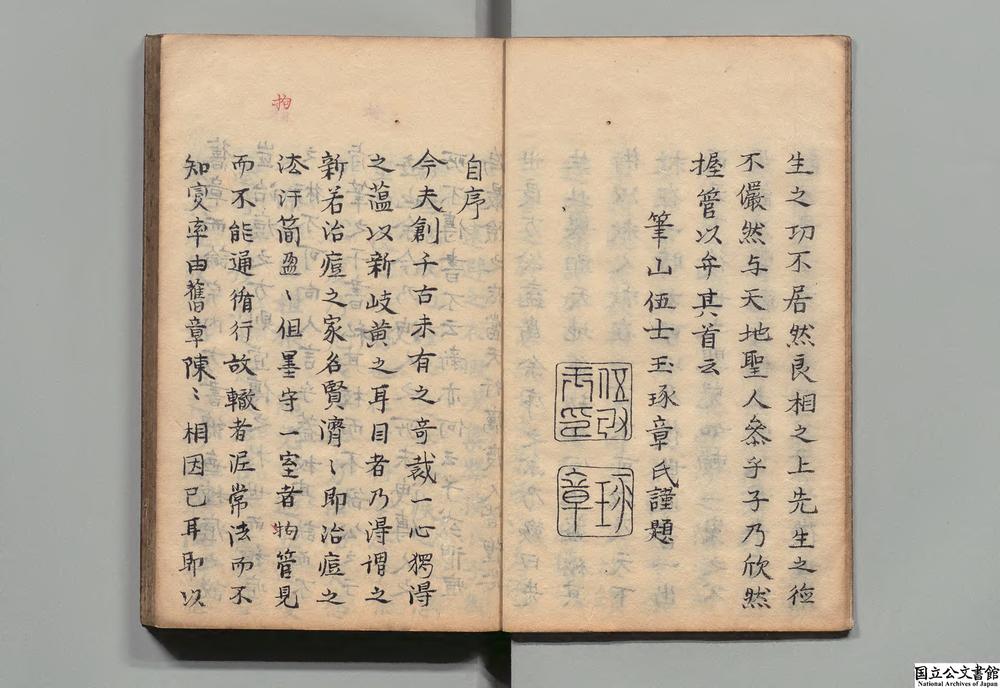 生之功不居然良相之上先生之德
不儼然与天地聖人叅乎子乃欣然
握管以弁其首云
筆山伍士玉琢章氏謹題
琢章
自序
今夫創千古未有之竒裁一心獨得
之蘊以新岐黄之耳目者乃得謂之
新若治痘之家名賢濟〻即治痘之
法汗简盈〻但墨守一室者拘管見
而不能通循行故轍者泥常法而不
知变率由舊章陳〻相因已耳即以
拘
国立公文書館
National Archives of Japan